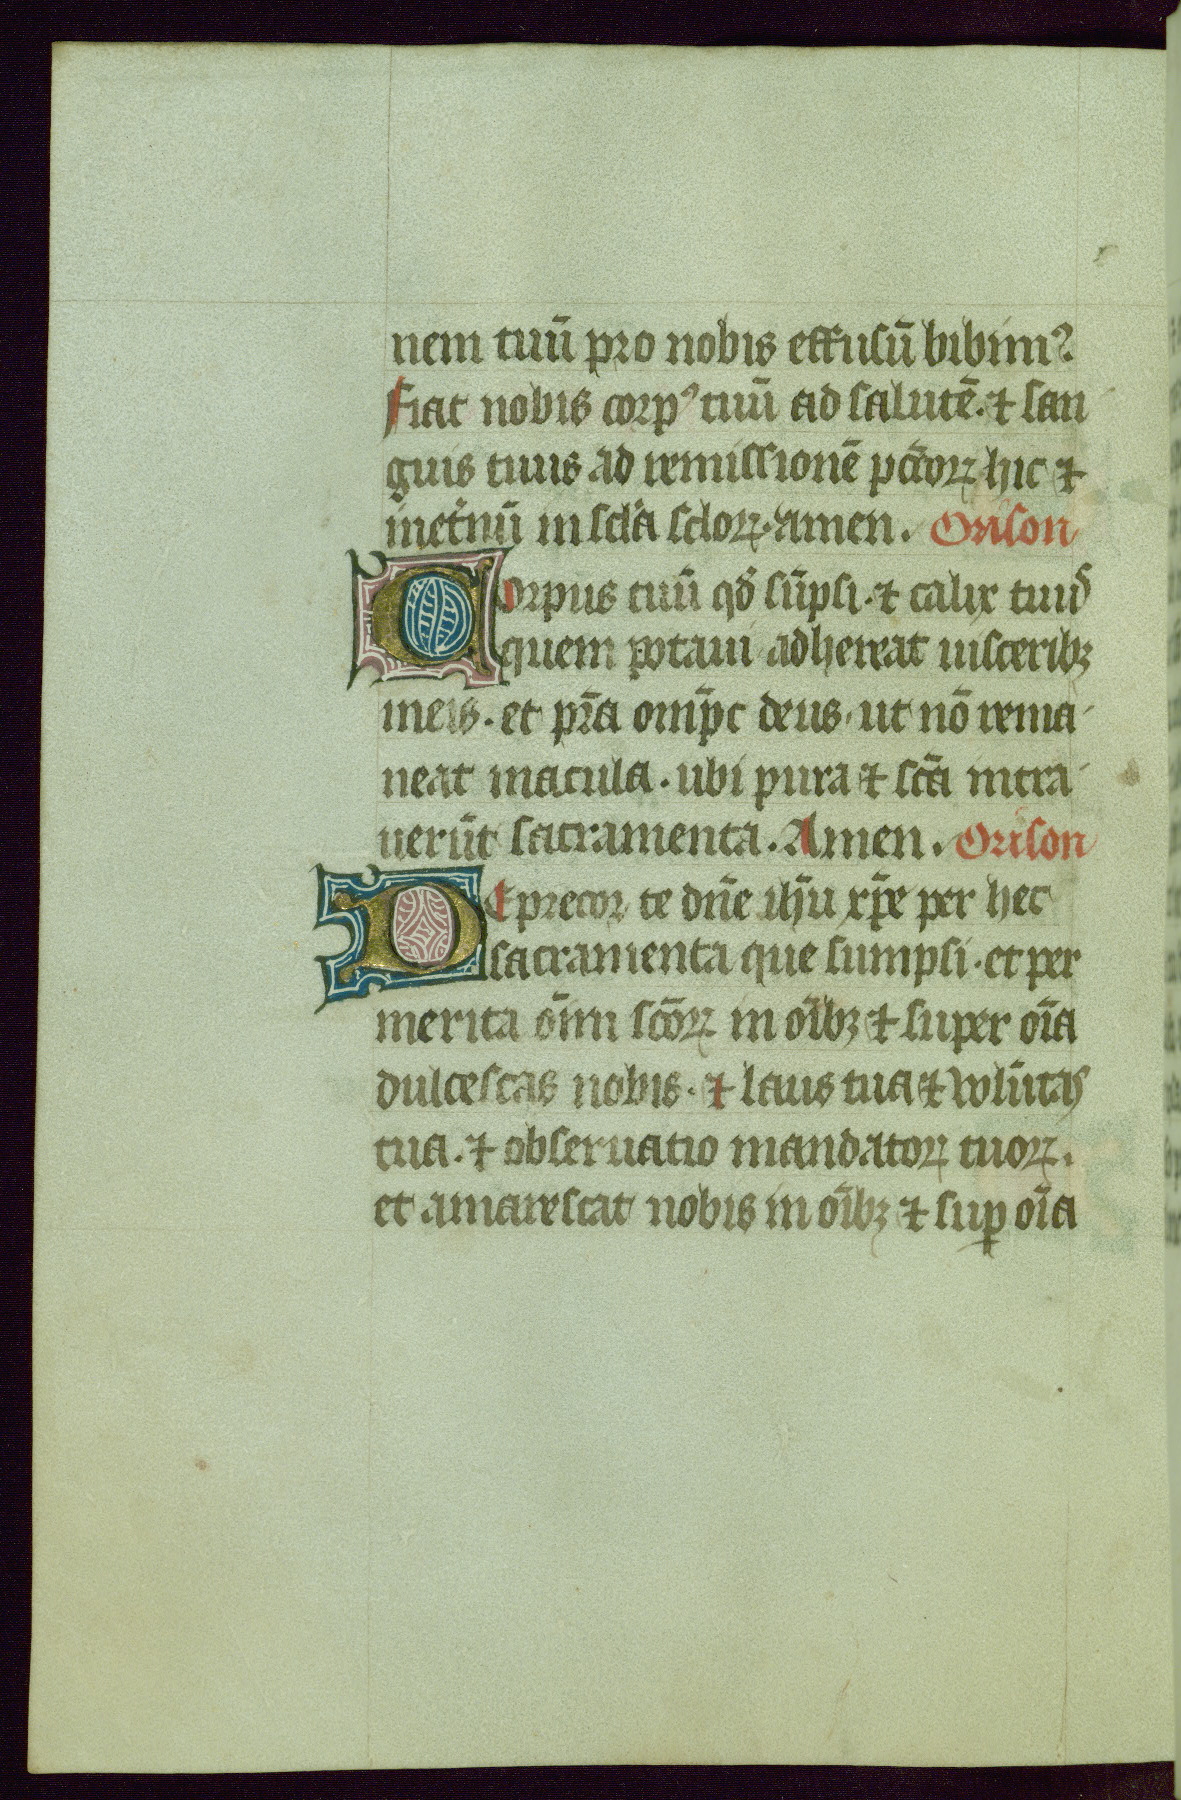 nem tuū pro nobis effusū bibimꝰ.
Fiat nobis corpꝰ tuū ad salutē. ⁊ san
guis tuus ad remissionē pctōrꝝ hic ⁊
inet̄nū in scl̄a sclorꝝ. Amen. Orison
Corpus tuū qḋ sūpsi. ⁊ calix tuus
quem potaui adhereat uisceribꝫ
meis. et pr̄a omp̄c deus ut nō rema
neat macula. ubi pura ⁊ sc̄a intra
uerūt sacramenta. Amen. Orison
Deprecor te dn̄e ih̄u xp̄e per hec
sacramenta que sumpsi. et per
merita ōim sc̄orꝝ in oībꝫ ⁊ super oīa
dulcescas nobis. ⁊ laus tua ⁊ volūtas
tua. ⁊ obseruatio mandatorꝝ tuorꝝ.
et amarescat nobis in oībꝫ ⁊ suꝑ oīa